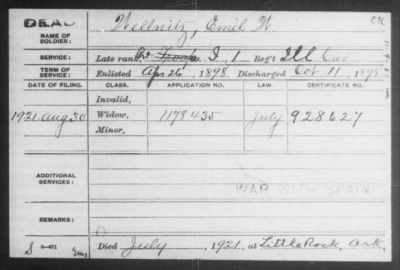 DEAD
NAME OF SOLDIER: Wellnitz, Emil W
SERVICE: Late rank, Troop I, 1 Reg't Ill Cav
TERM OF SERVICE: Enlisted Apr 26, 1898 Discharged Oct 11, 1898
DATE OF FILING. CLASS. APPLICATION NO. LAW. CERTIFICATE NO.
Invalid,
1921 Aug 30 Widow, 1178435 July 928627
Minor,
ADDITIONAL SERVICES:
WAR WITH SPAIN
REMARKS:
Died July, 1921, at Little Rock, Ark.